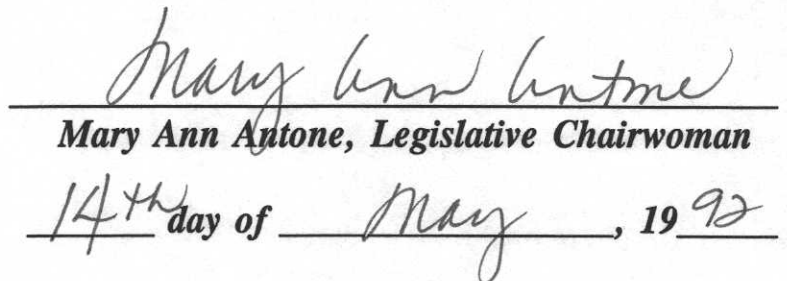 Mary Ann Antone
Mary Ann Antone, Legislative Chairwoman
14th day of May, 1992